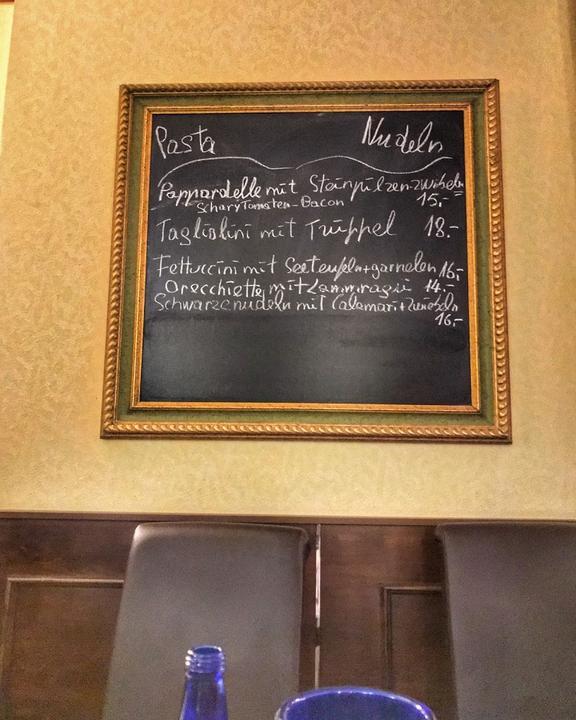 Pasta Nudeln
Pappardelle mit Steinpilzen-Zwibeln
Schary Tomaten-Bacon 15,-
Tagliolini mit Trüffel 18.-
Fettuccini mit Seeteufeln+garnelen 16,-
Orecchiette mit Lammragú 14.-
Schwarzenudeln mit Calamari+Zwiebeln
16,-